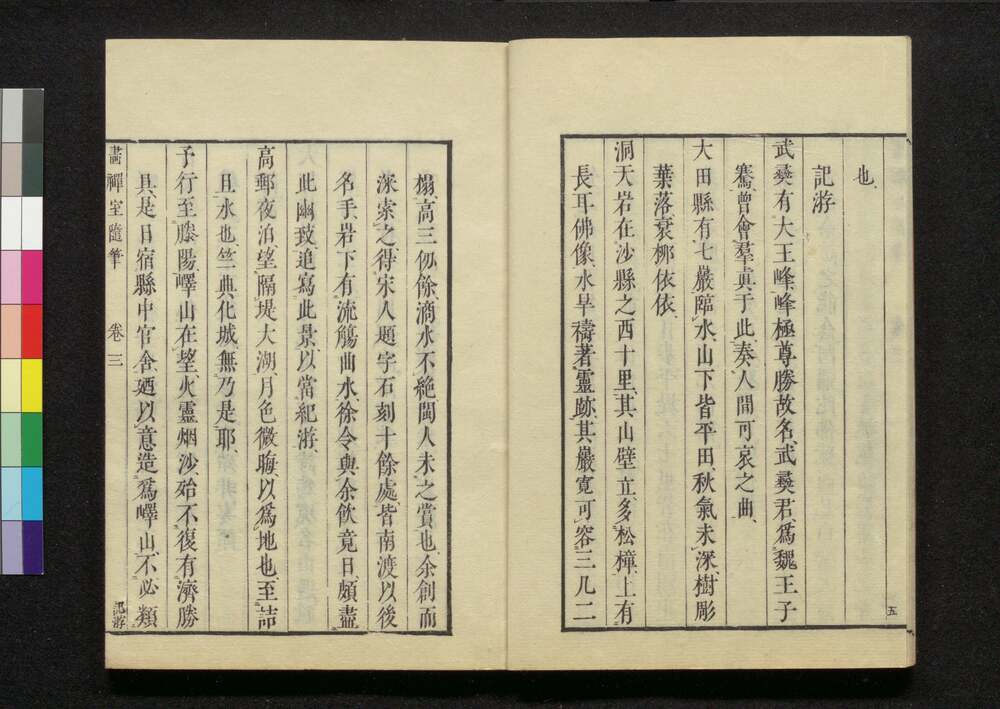 也、
記游
武彜有大王峰、峰極尊勝、故名、武彜君、爲魏王子
騫、曾會羣真于此、奏人間可哀之曲、
大田縣有七巖、臨水、山下皆平田、秋氣未深、樹彫
葉落、衰柳依依、
洞天岩在沙縣之西十里、其山壁立、多松樟、上有
長耳佛像、水旱禱著靈跡、其巖寛可容三几二
五
榻、高三仭餘、滴水不絶、閩人未之賞也、余創而
深索之、得宋人題字石刻十餘處、皆南渡以後
名手、岩下有流觴曲水、徐令與余飲竟日、頗盡
此幽致、追寫此景、以當紀游、
高郵夜泊、望隔堤大湖、月色微晦、以爲地也、至詰
旦水也、竺典化城、無乃是耶、
予行至滕陽、嶧山在望、火靈烟沙、殆不復有濟勝
具、是日宿縣中官舍、廼以意造爲嶧山、不必類
畵禪室隨筆 卷三 記游